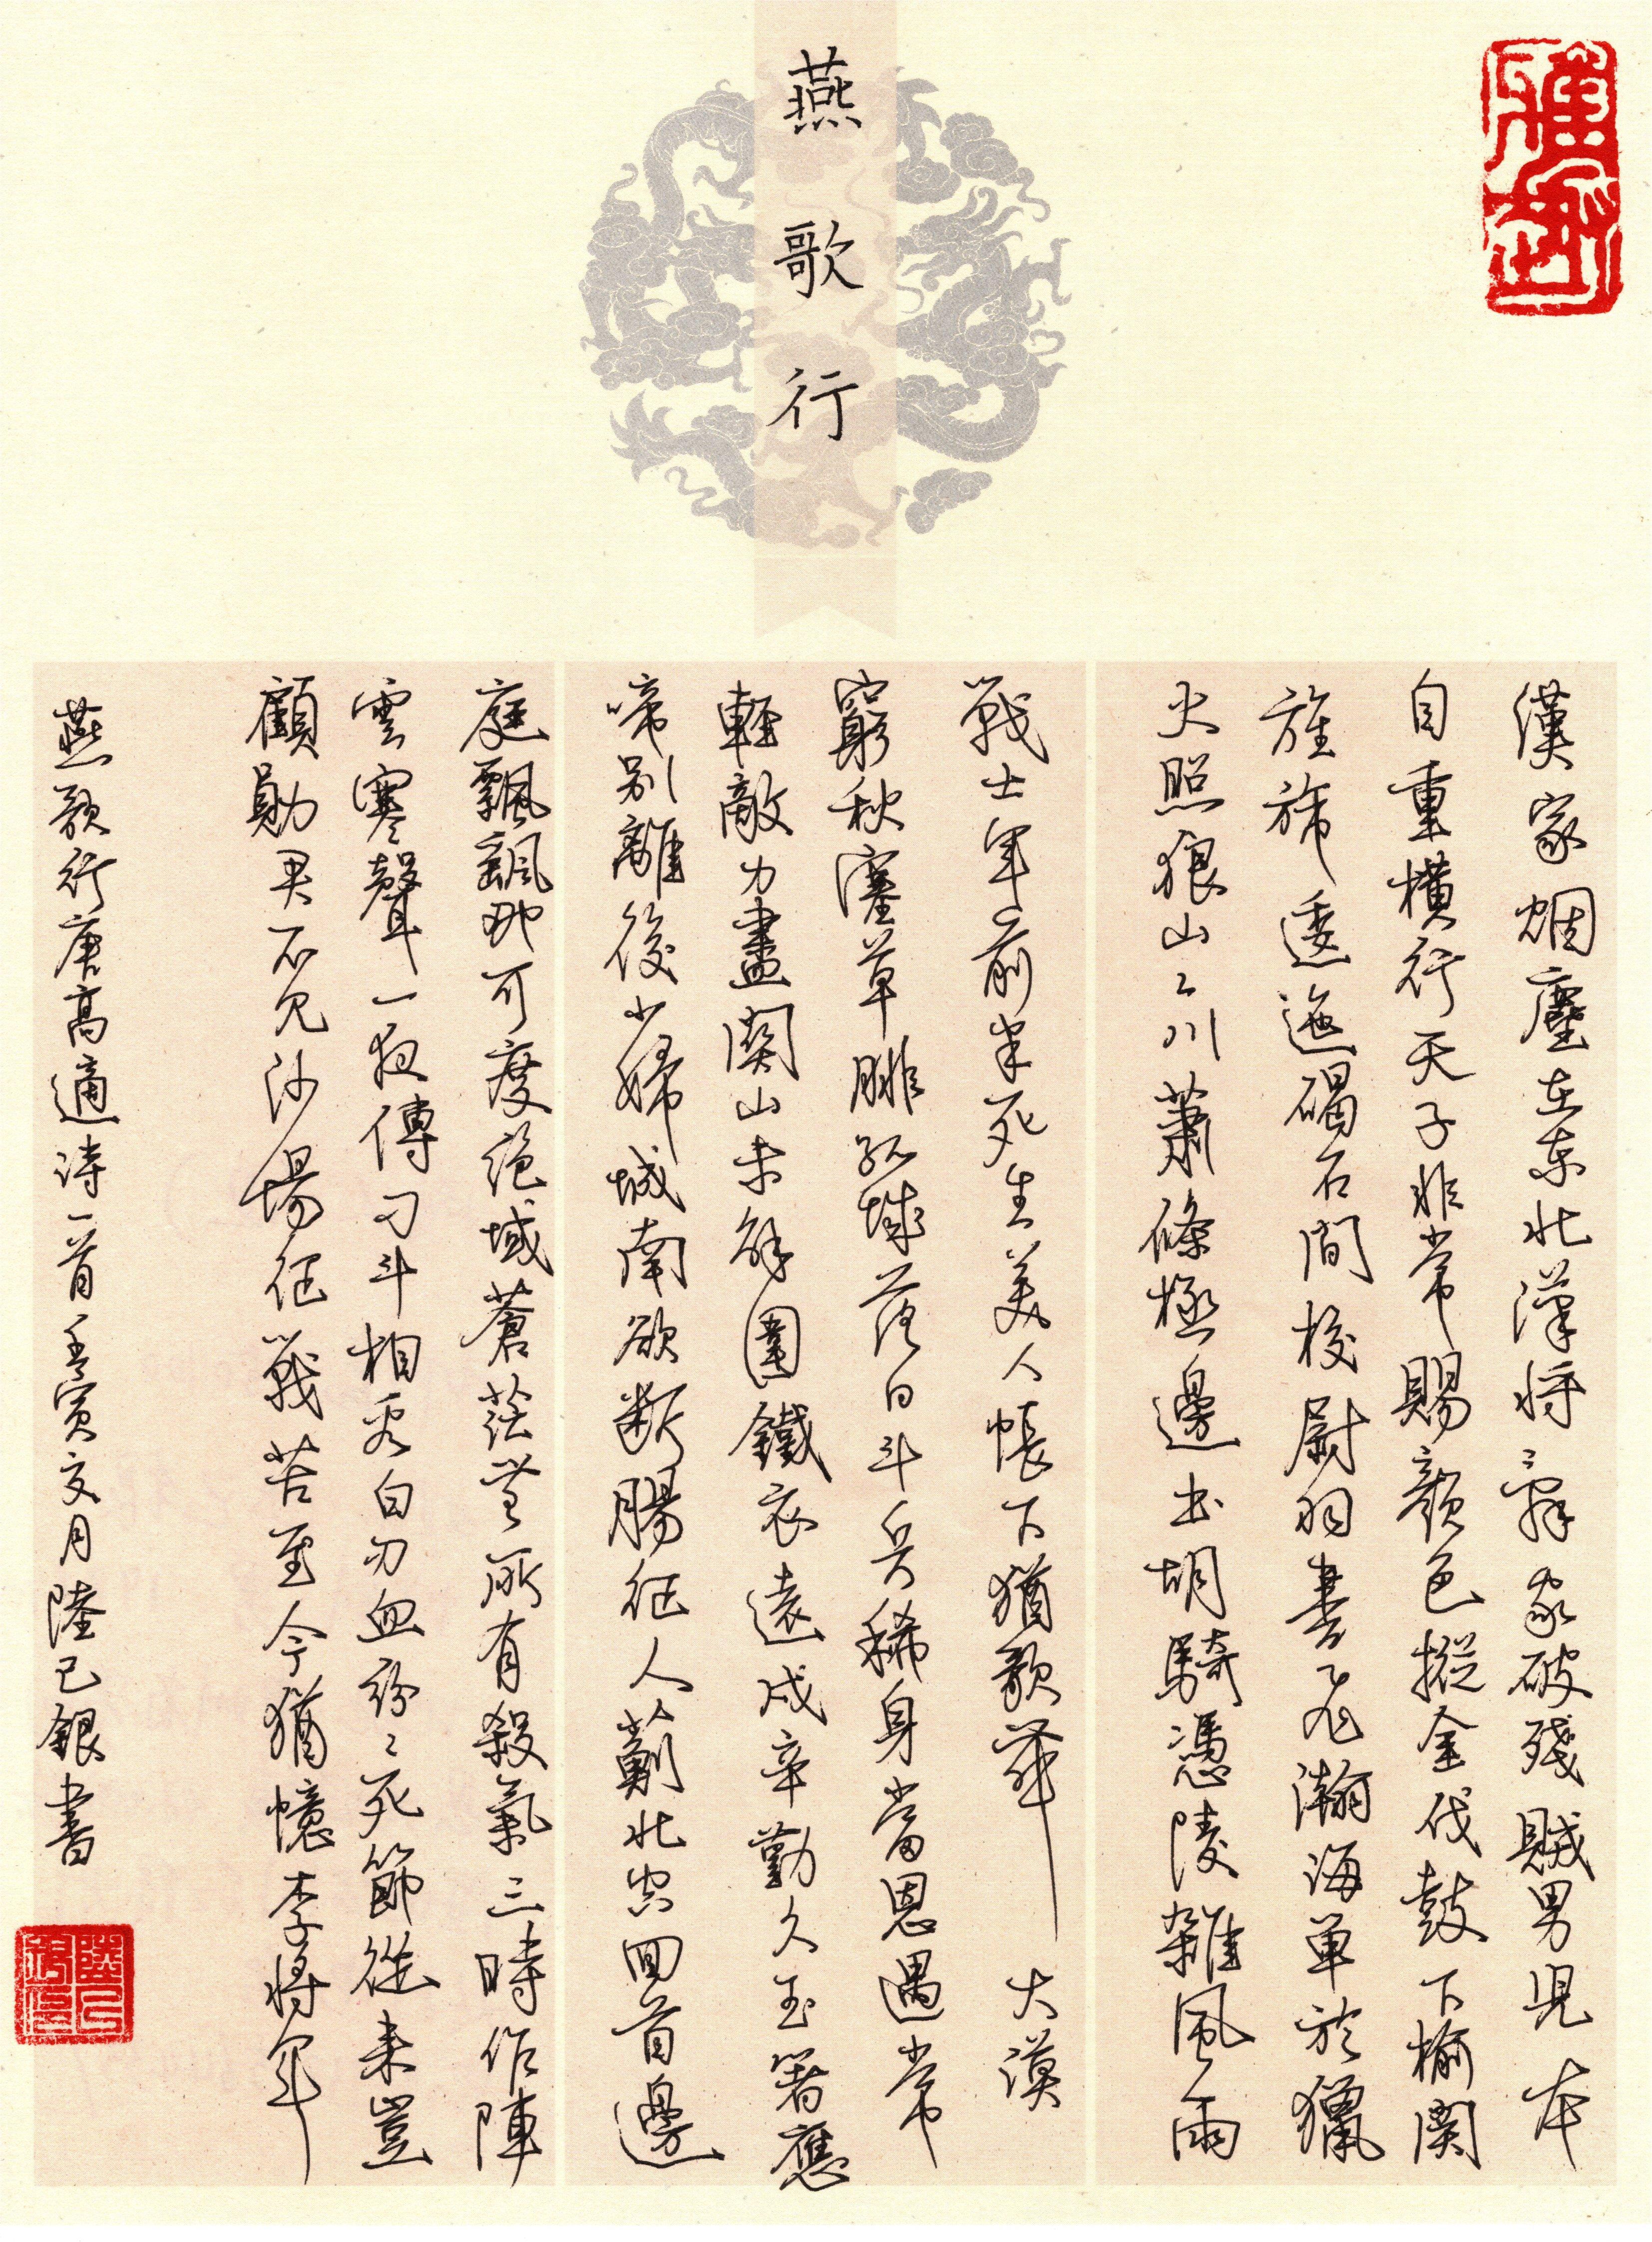 燕歌行
漢家烟塵在東北漢將辭家破殘賊男兒本
自重橫行天子非常賜顏色摐金伐鼓下榆關
旌旆逶迤碣石間校尉羽書飛瀚海單於獵
火照狼山〻川蕭條極邊土胡騎憑陵雜風雨
戰士軍前半死生美人帳下猶歌舞 大漠
窮秋塞草腓孤城落日斗兵稀身當恩遇常
輕敵力盡關山未解圍鐵衣遠戍辛勤久玉箸應
啼別離後少婦城南欲斷腸征人薊北空回首邊
庭飄颻那可度絕域蒼茫無所有殺氣三時作陣
雲寒聲一夜傳刁斗相看白刃血紛〻死節從來豈
顧勛君不見沙場征戰苦至今猶憶李將軍
燕歌行唐高適詩一首壬寅文月陸已銀書